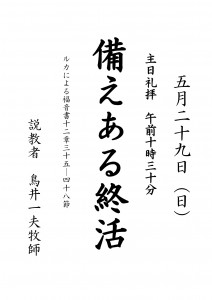 五月二十九日（日）
主日礼拝　午前十時三十分
備えある終活
ルカによる福音書十二章三十五―四十八節
説教者　鳥井一夫牧師